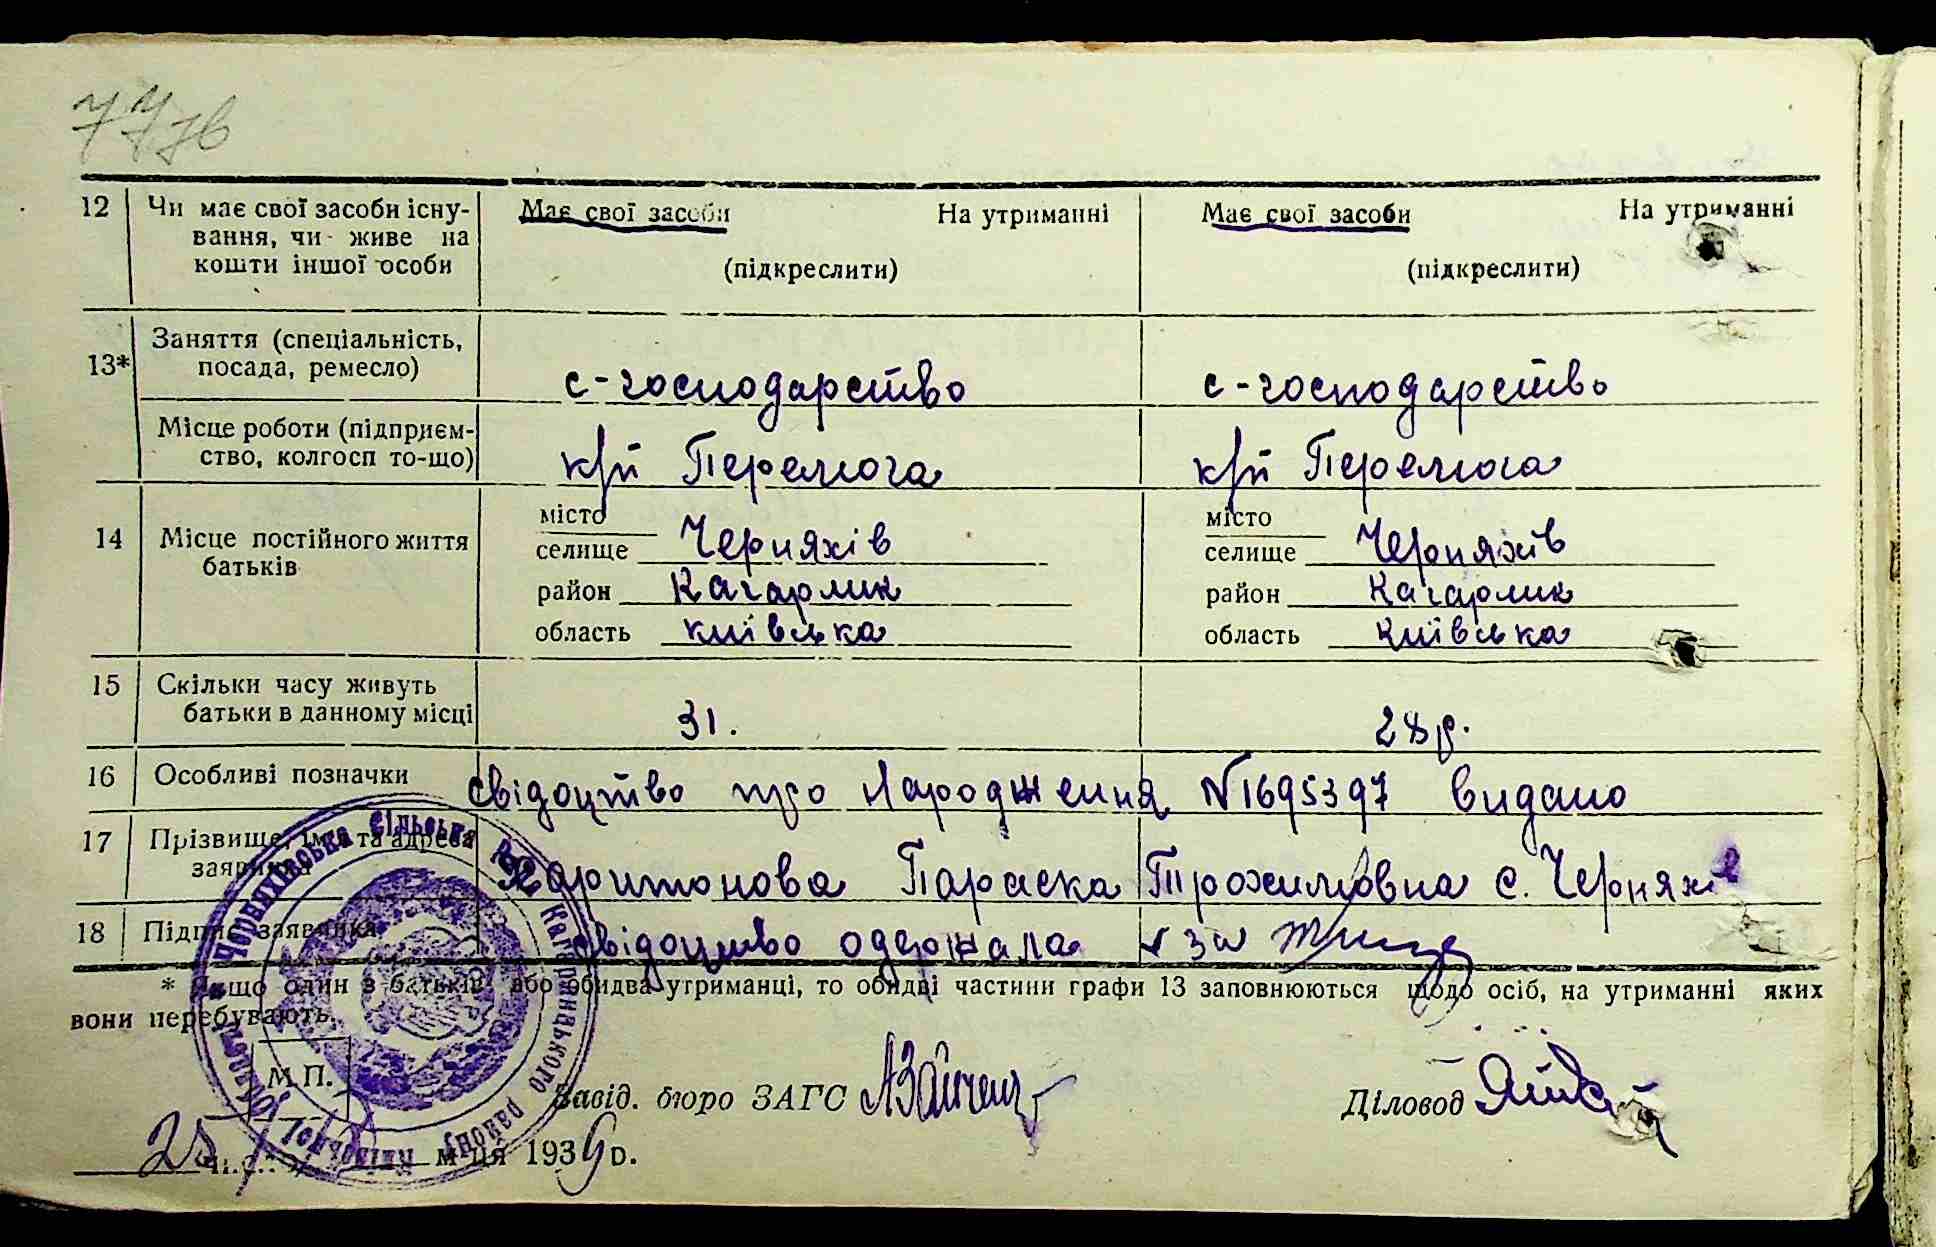 77зв
12 Чи має свої засоби існу- Має свої засоби На утриманні Має свої засоби На утриманні
вання, чи живе на
кошти іншої особи (підкреслити) (підкреслити)
13* Заняття (спеціальність,
посада, ремесло) с-господарство с-господарство
Місце роботи (підприєм-
ство, колгосп то-що) к/п Перемога к/п Перемога
місто місто
14 Місце постійного життя селище Черняхів селище Черняхів
батьків район Кагарлик район Кагарлик
область київська область київська
15 Скільки часу живуть
батьки в данному місці 31. 28 р.
16 Особливі позначки свідоцтво про Народження №1695397 видано
17 Прізвище, ім'я та адреса
заявника Харитонова Параска Трохимовна с. Черняхів
18 Підпис заявника свідоцтво одержала за
* Якщо один з батьків або обидва утриманці, то обидві частини графи 13 заповнюються щодо осіб, на утриманні яких
вони перебувають.
Черняхівська Сільська Рада Кагарлицького району Київської області
М.П.
Завід. бюро ЗАГС Діловод
25 м-ця 1939 р.